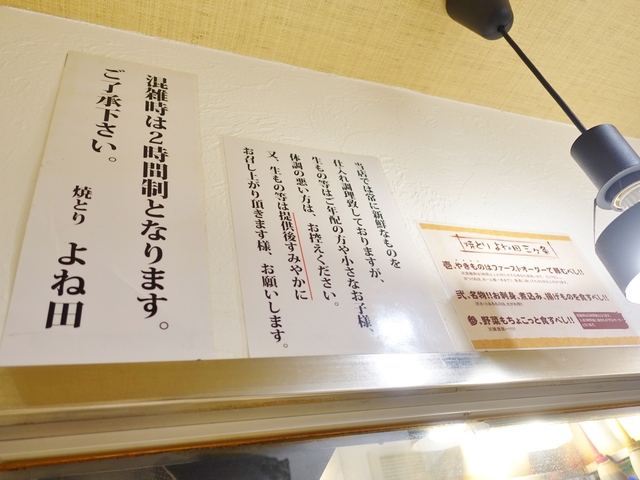 混雑時は2時間制となります。
ご了承下さい。
焼とり よね田
当店では常に新鮮なものを
仕入れ調理致しておりますが、
生もの等はご年配の方や小さなお子様、
体調の悪い方は、お控えください。
又、生もの等は提供後すみやかに
お召し上がり頂きます様、お願いします。
焼とり よね田三ヶ条
壱、やきものはファーストオーダーで頼むべし!!
弐、名物!!お刺身、煮込み、揚げものを食すべし!!
参、野菜もちょこっと食すべし!!